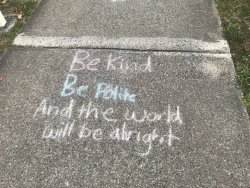 Be Kind
Be Polite
And the world
will be alright